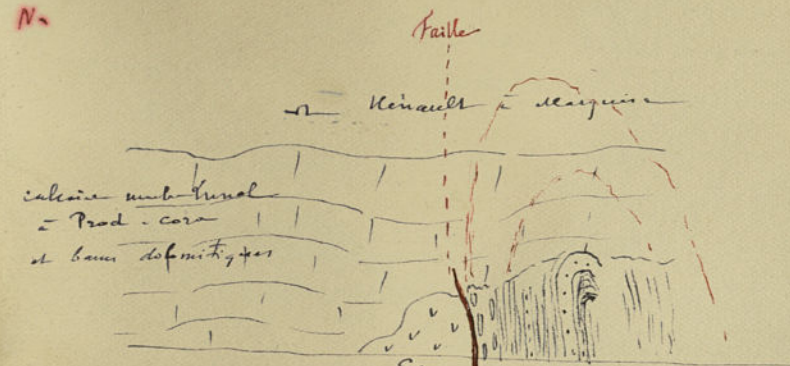 N.
Faille
Hénault à Marquise
calcaire
à Prod. cora
et bancs dolomitiques